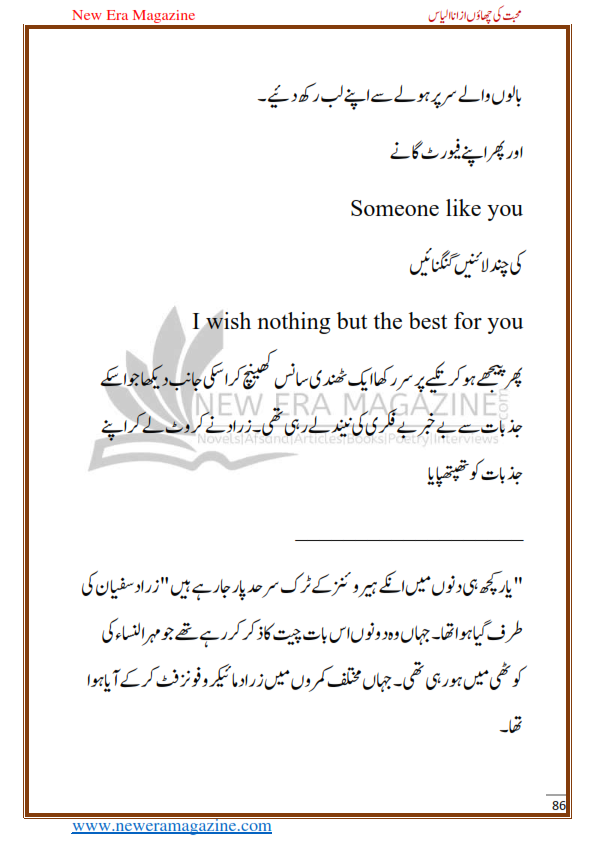 New Era Magazine
محبت کی چھاؤں از انا الیاس
بالوں والے سر پر ہولے سے اپنے لب رکھ دئیے۔
اور پھر اپنے فیورٹ گانے
Someone like you
کی چند لائنیں گنگنائیں
I wish nothing but the best for you
پھر پیچھے ہو کر تکیے پر سر رکھا ایک ٹھنڈی سانس کھینچ کر اسکی جانب دیکھا جو اسکے
NEW ERA MAGAZINE.com
جذبات سے بے خبر بے فکری کی نیند لے رہی تھی۔ زراد نے کروٹ لے کر اپنے
Novels|Afsana|Articles|Books|Poetry|Interviews
جذبات کو تھپتھپایا
"یار کچھ ہی دنوں میں انکے ہیروئنز کے ٹرک سرحد پار جا رہے ہیں" زراد سفیان کی
طرف گیا ہوا تھا۔ جہاں وہ دونوں اس بات چیت کا ذکر کر رہے تھے جو مہرالنساء کی
کوٹھی میں ہو رہی تھی۔ جہاں مختلف کمروں میں زراد مائیکروفونز فٹ کر کے آیا ہوا
تھا۔
86
www.neweramagazine.com